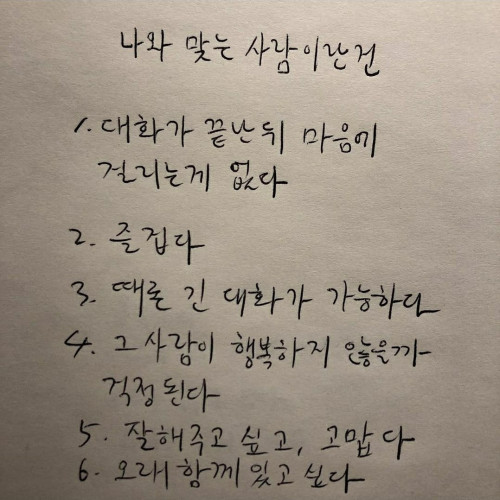 나와 맞는 사람이란건
1. 대화가 끝난뒤 마음에
걸리는게 없다
2. 즐겁다
3. 때론 긴 대화가 가능하다
4. 그 사람이 행복하지 않을까
걱정된다
5. 잘해주고 싶고, 고맙다
6. 오래 함께 있고 싶다